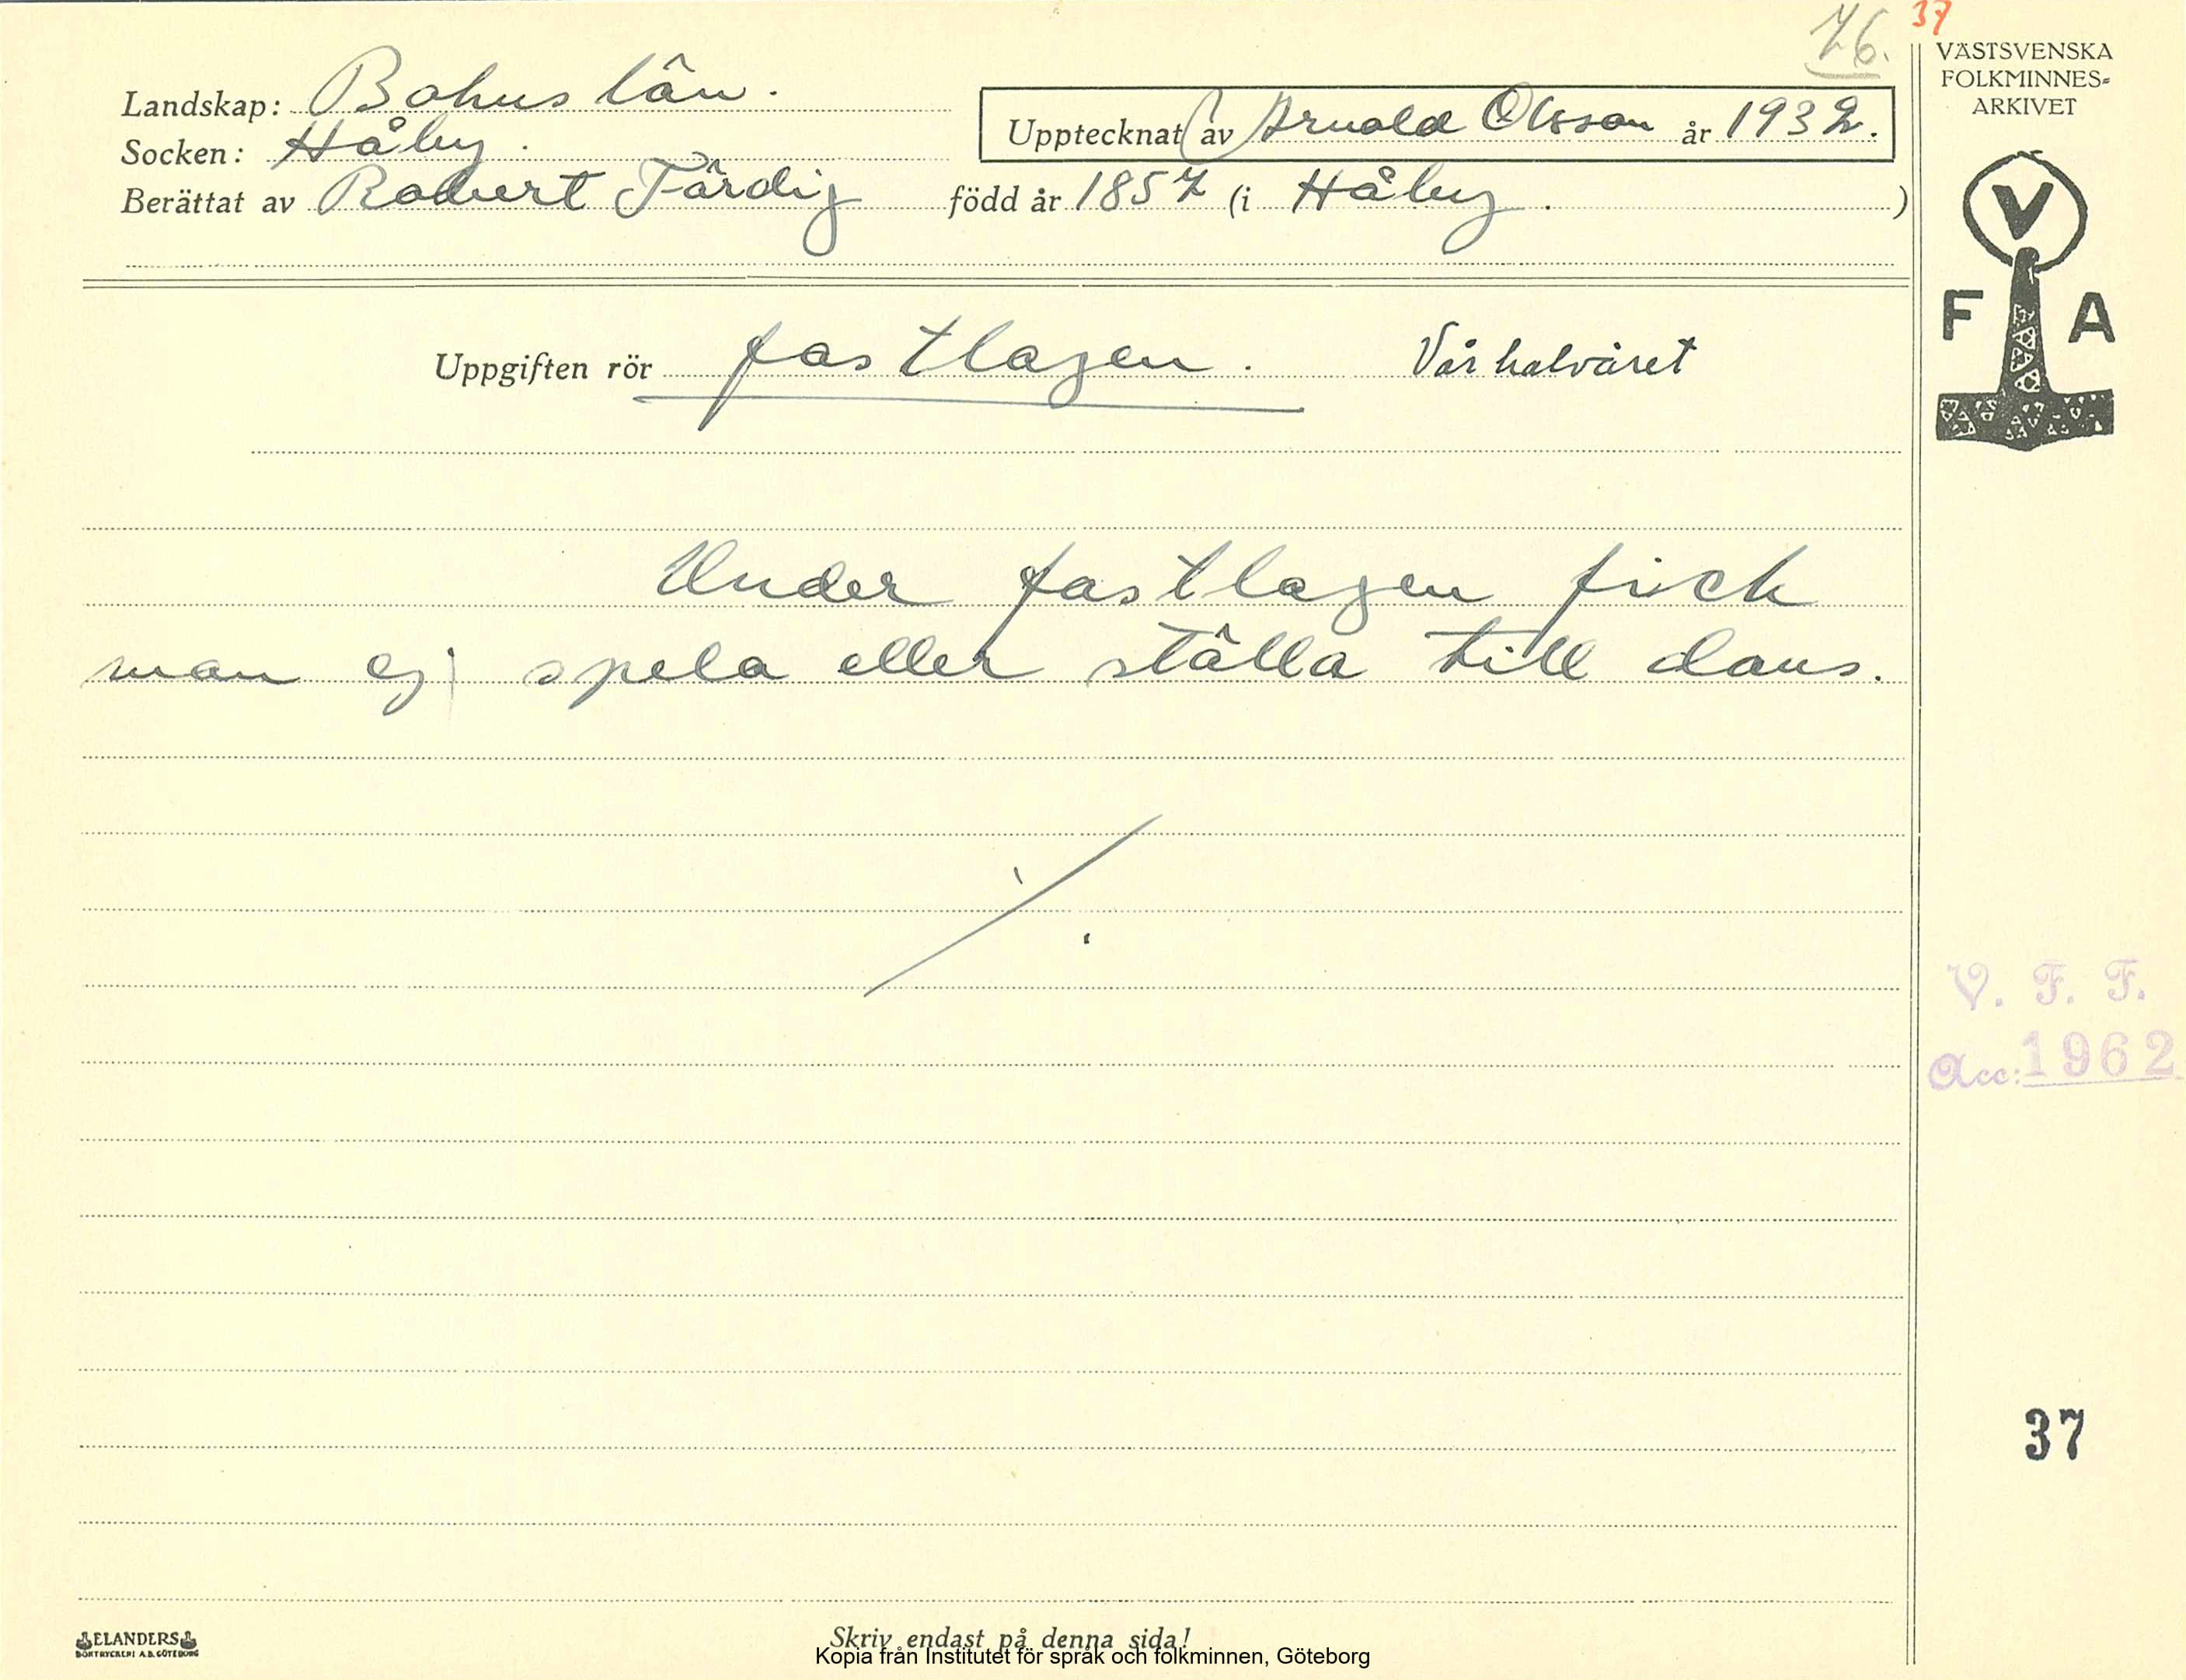 76. 37
VÄSTSVENSKA
FOLKMINNES=
ARKIVET
Landskap: Bohuslän.
Upptecknat av Arnold Olsson år 1932.
Socken: Håby.
Berättat av Robert Färdig född år 1857 (i Håby. )
V
F A
Uppgiften rör fastlagen. Vårhalvåret
Under fastlagen fick
man ej spela eller ställa till dans.
V. F. F.
Acc: 1962
37
ELANDERS
BOKTRYCKERI A.B. GÖTEBORG
Skriv endast på denna sida!
Kopia från Institutet för språk och folkminnen, Göteborg